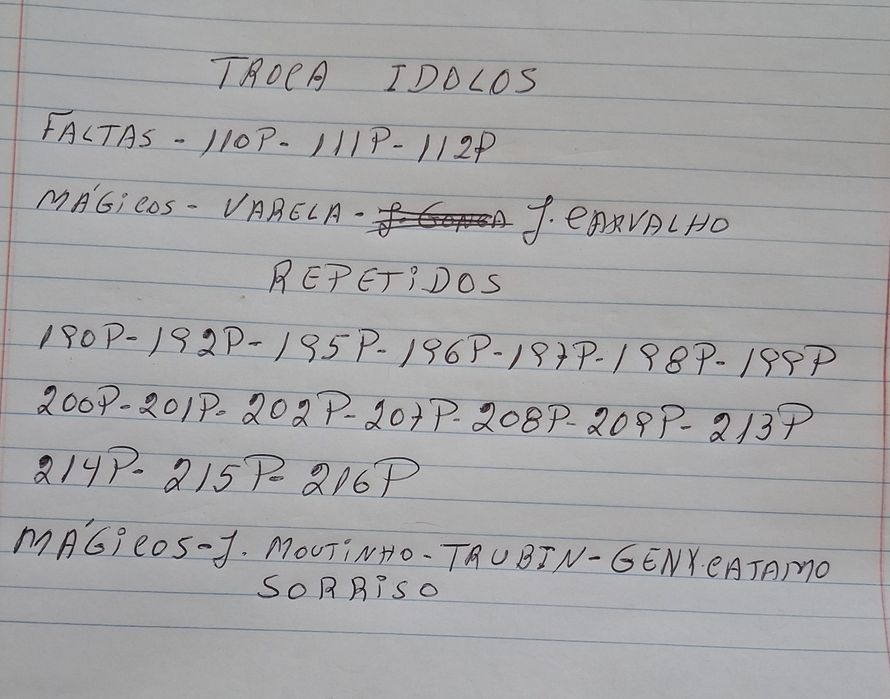 TROCA IDOLOS
FALTAS - 110P - 111P - 112P
MÁGICOS - VARELA - J. CARVALHO
REPETIDOS
190P - 192P - 195P - 196P - 197P - 198P - 199P
200P - 201P - 202P - 207P - 208P - 209P - 213P
214P - 215P - 216P
MÁGICOS - J. MOUTINHO - TRUBIN - GENY.CATAMO
SORRISO